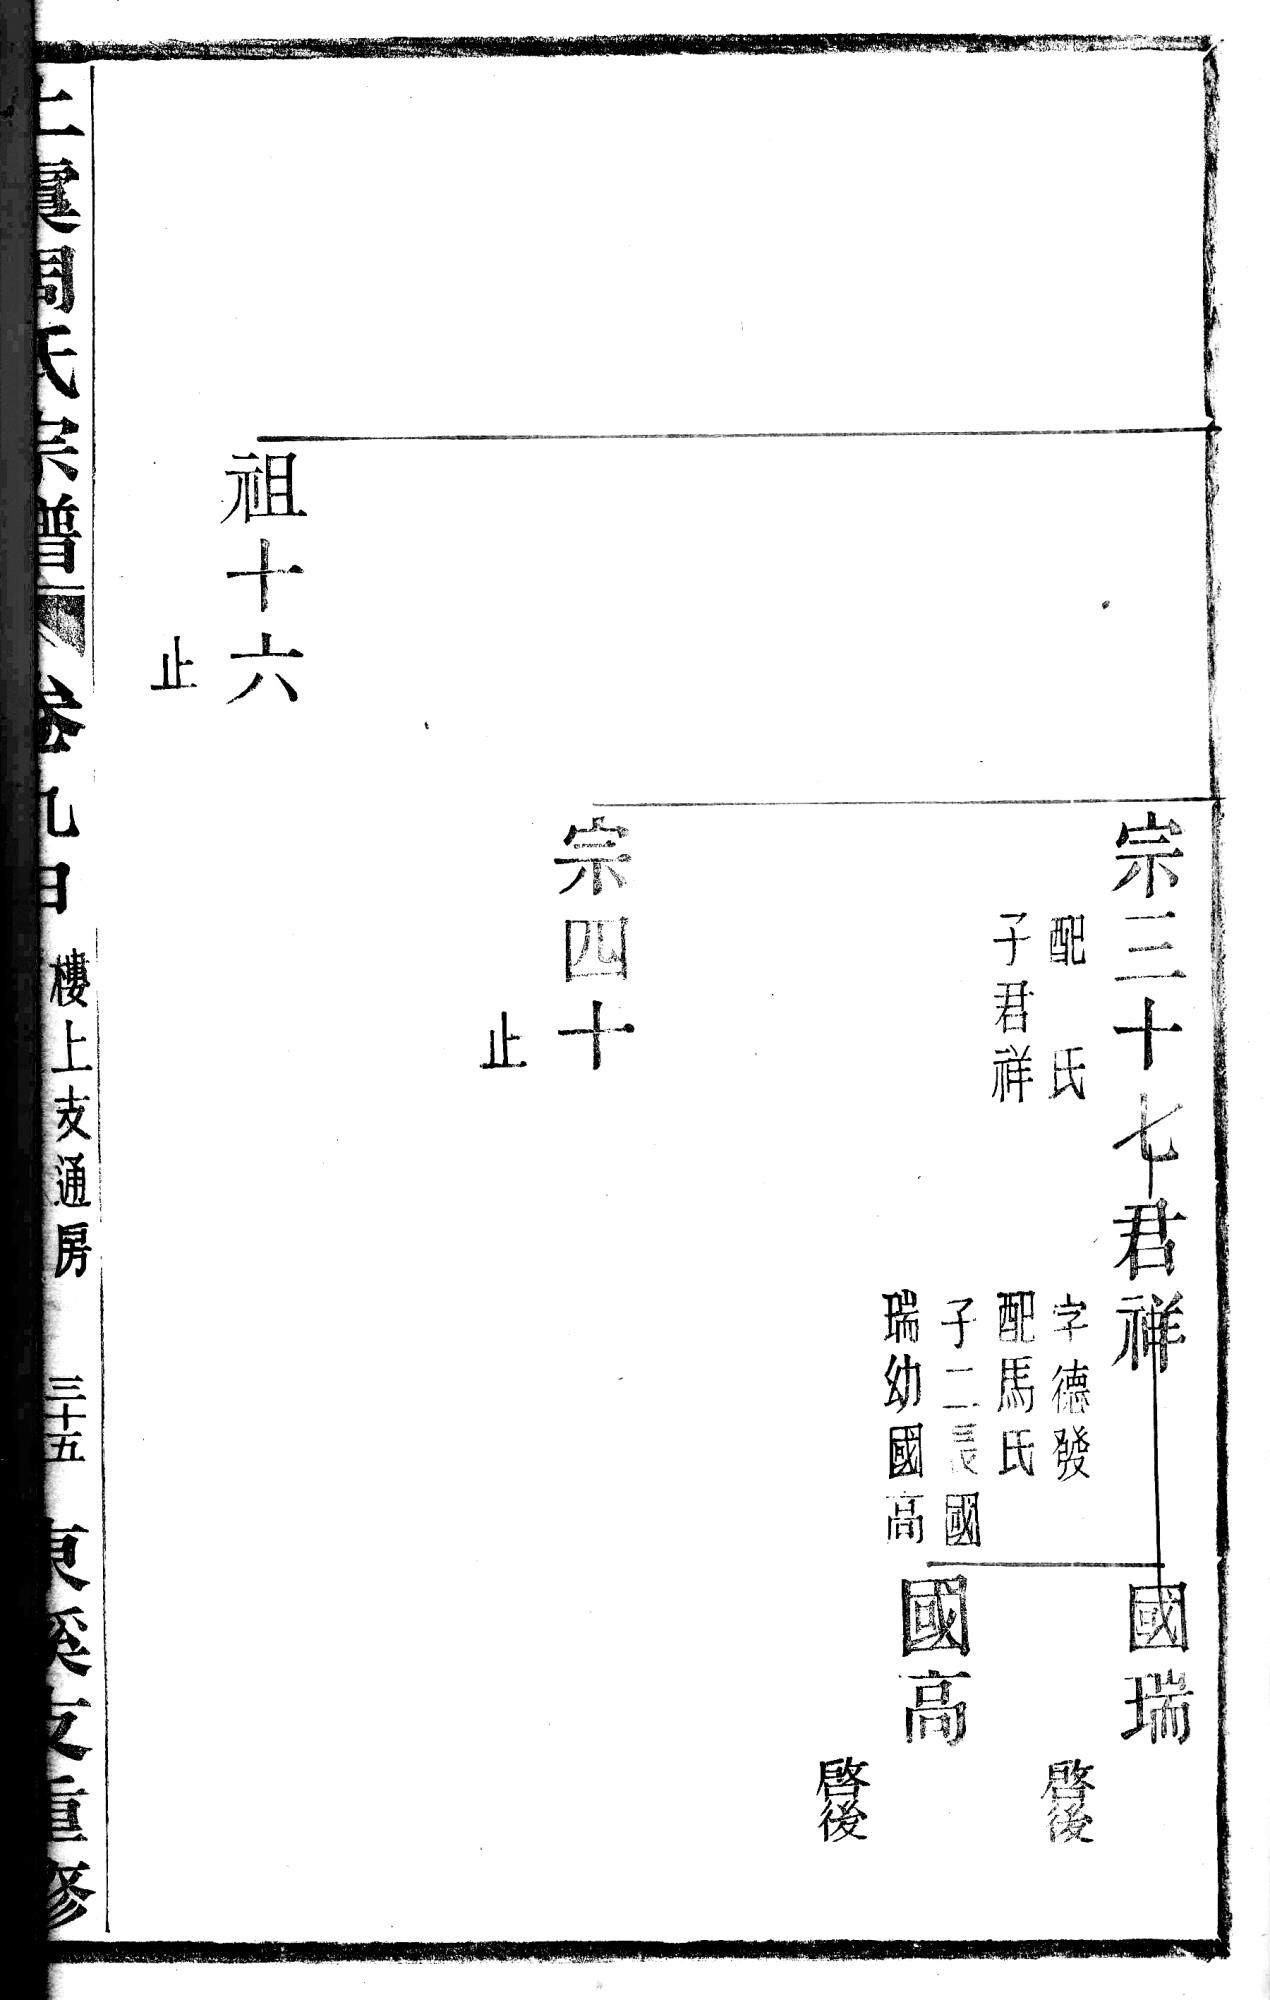 宗三十七
配　氏
子君祥
君祥
字德發
配馬氏
子二長國
瑞幼國高
國瑞
啓後
國高
啓後
宗四十
止
祖十六
止
上虞周氏宗譜
卷九
樓上支通房
三十五
重修